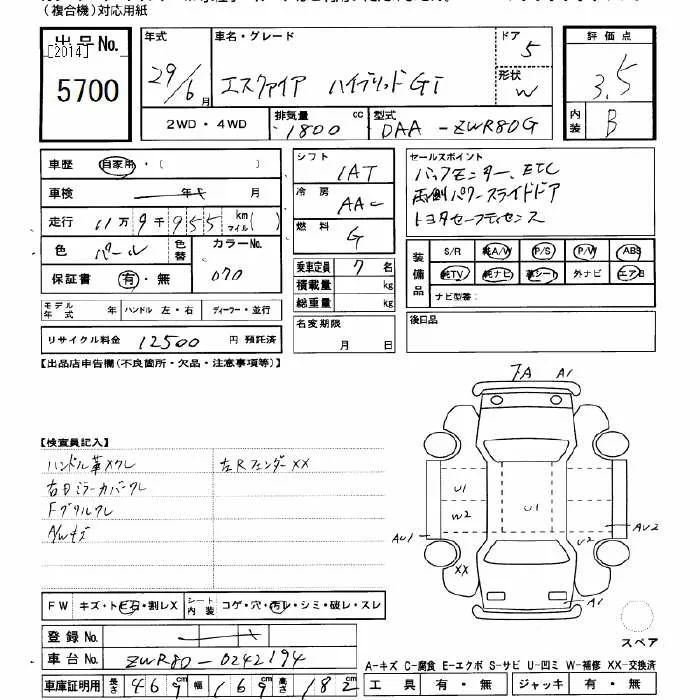 （複合機）対応用紙
出品No.
[2014]
5700
年式
29/6月
車名・グレード
エスクァイア ハイブリッドGI
ドア
5
形状
W
評価点
3.5
内装
B
2WD・4WD
排気量
1800 cc
型式
DAA-ZWR80G
車歴 自家用・（ ）
車検 年 月
走行 11万9千955 km マイル（ ）
色 パール 色替
カラーNo.
070
保証書 有・無
シフト
1AT
冷房
AAC
燃料
G
乗車定員 7名
積載量 kg
総重量 kg
セールスポイント
バックモニター、ETC
両側パワースライドドア
トヨタセーフティセンス
装備品
S/R 純A/W P/S P/W ABS
純TV 純ナビ 革シート 外ナビ エアB
ナビ型番：
モデル年式 年 ハンドル 左・右 ディーラー・並行
リサイクル料金 12500 円 預託済
名変期限
月 日
後日品
【出品店申告欄(不良箇所・欠品・注意事項等)】
7A A1
【検査員記入】
ハンドル革スレ
左Rフェンダー××
右Dミラーカバークレ
Fグリルクレ
A/Wキズ
U1
W2
U1
AU1
AU2
U2
XX
A1
スペア
FW キズ・トビ石・割レX
シート内装 コゲ・穴・汚レ・シミ・破レ・スレ
登録No.
車台No. ZWR80-0242194
車庫証明用 長さ 469 幅 169 高さ 182
A-キズ C-腐食 E-エクボ S-サビ U-凹ミ W-補修 XX-交換済
工具 有・無 ジャッキ 有・無